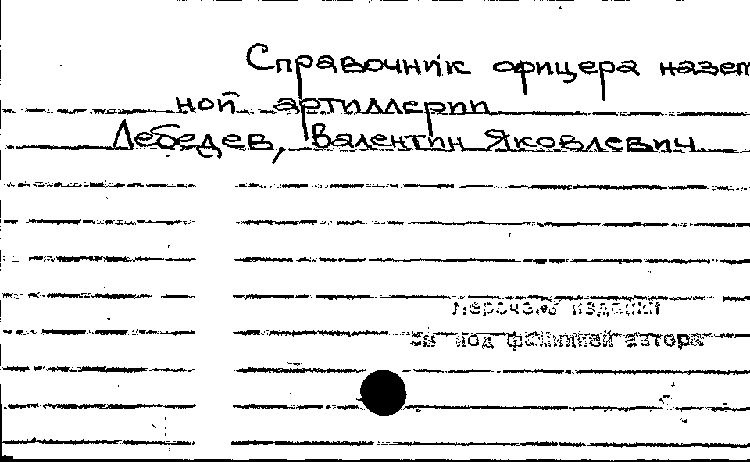 Справочник офицера назем
ной артиллерии
Лебедев, Валентин Яковлевич
Перечень изданий
см под фамилией автора